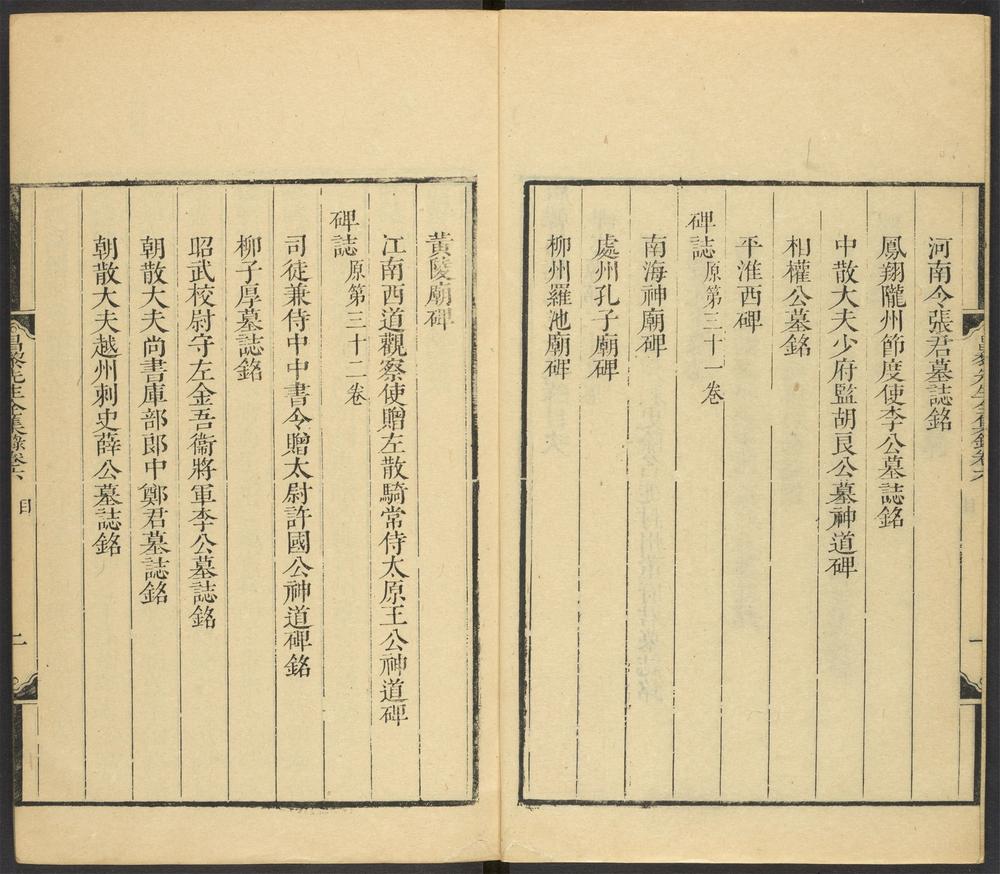 河南令張君墓誌銘
鳳翔隴州節度使李公墓誌銘
中散大夫少府監胡良公墓神道碑
相權公墓銘
平淮西碑
碑誌 原第三十一卷
南海神廟碑
處州孔子廟碑
柳州羅池廟碑
黃陵廟碑
江南西道觀察使贈左散騎常侍太原王公神道碑
碑誌 原第三十二卷
司徒兼侍中中書令贈太尉許國公神道碑銘
柳子厚墓誌銘
昭武校尉守左金吾衞將軍李公墓誌銘
朝散大夫尚書庫部郎中鄭君墓誌銘
朝散大夫越州刺史薛公墓誌銘
昌黎先生全集錄卷六 目 二